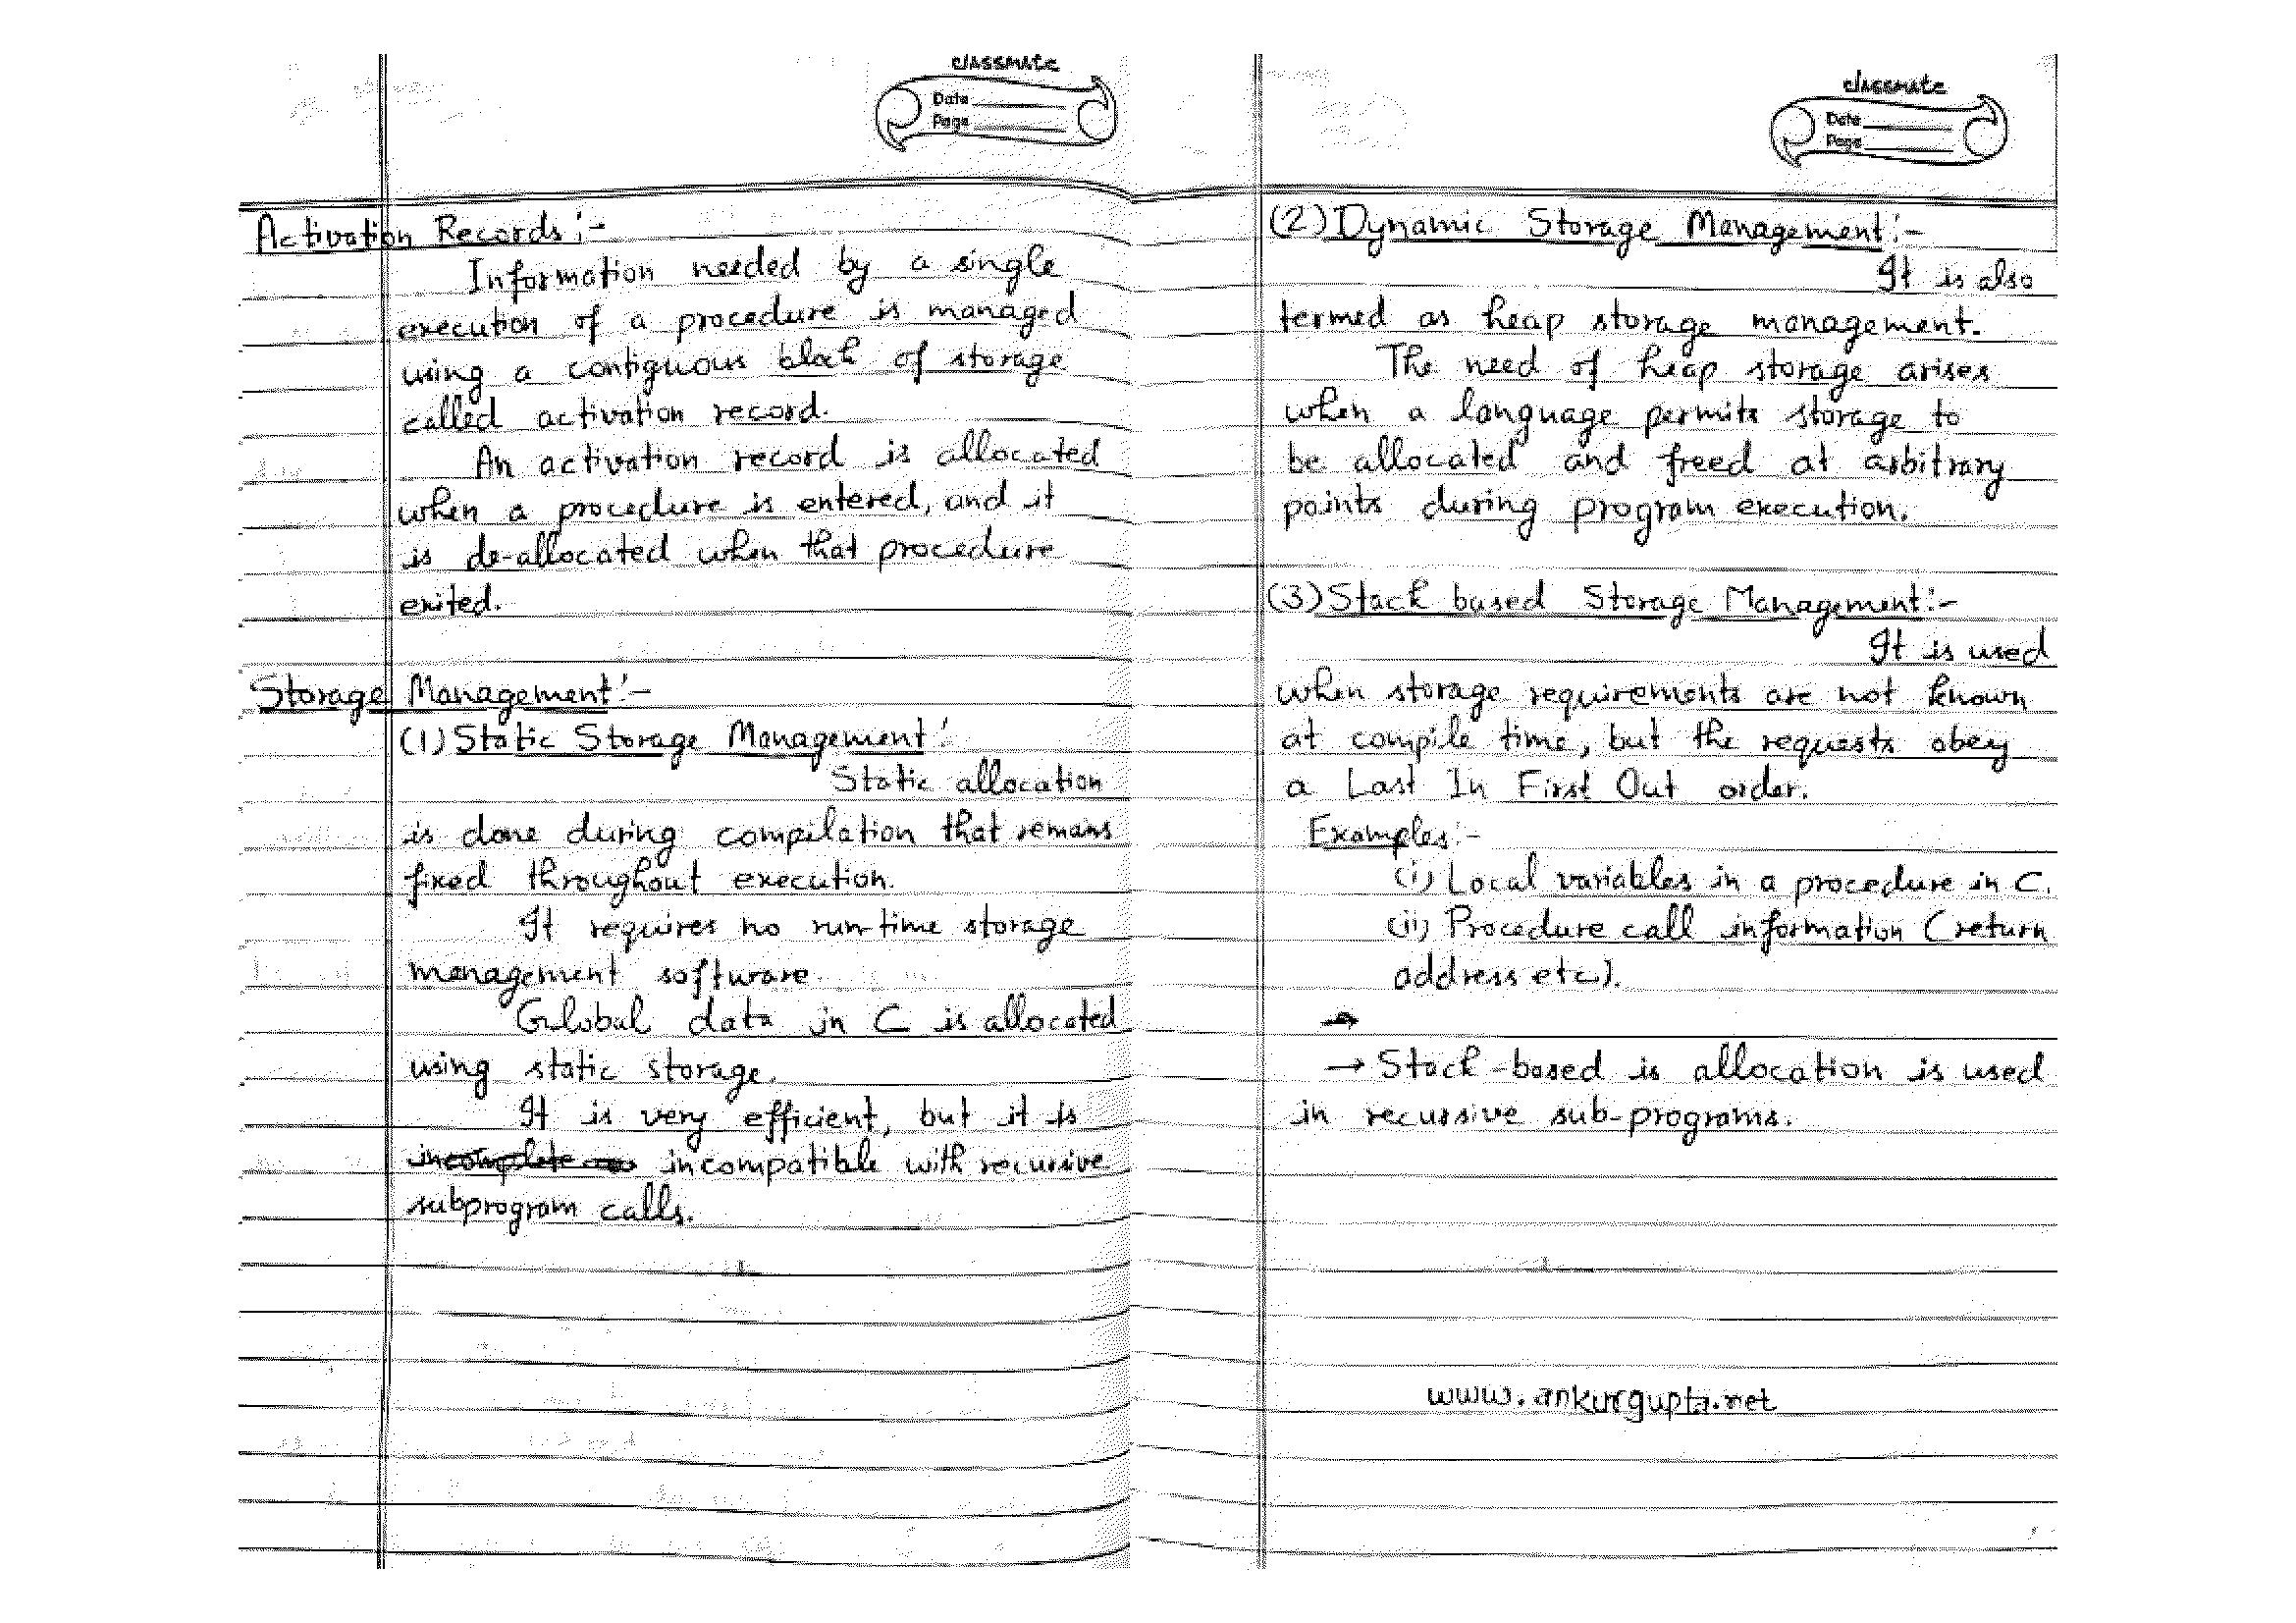 classmate
Date
Page
Activation Records :-
Information needed by a single
execution of a procedure is managed
using a contiguous block of storage
called activation record.
An activation record is allocated
when a procedure is entered, and it
is de-allocated when that procedure
exited.
Storage Management :-
(1) Static Storage Management :
Static allocation
is done during compilation that remans
fixed throughout execution.
It requires no run-time storage
management software.
Global data in C is allocated
using static storage.
It is very efficient, but it is
incomplete incompatible with recursive
subprogram calls.
classmate
Date
Page
(2) Dynamic Storage Management :-
It is also
termed as heap storage management.
The need of heap storage arises
when a language permits storage to
be allocated and freed at arbitrary
points during program execution.
(3) Stack based Storage Management :-
It is used
when storage requirements are not known
at compile time, but the requests obey
a Last In First Out order.
Examples :-
(i) Local variables in a procedure in C.
(ii) Procedure call information (return
address etc).
→ Stack-based is allocation is used
in recursive sub-programs.
www.ankurgupta.net